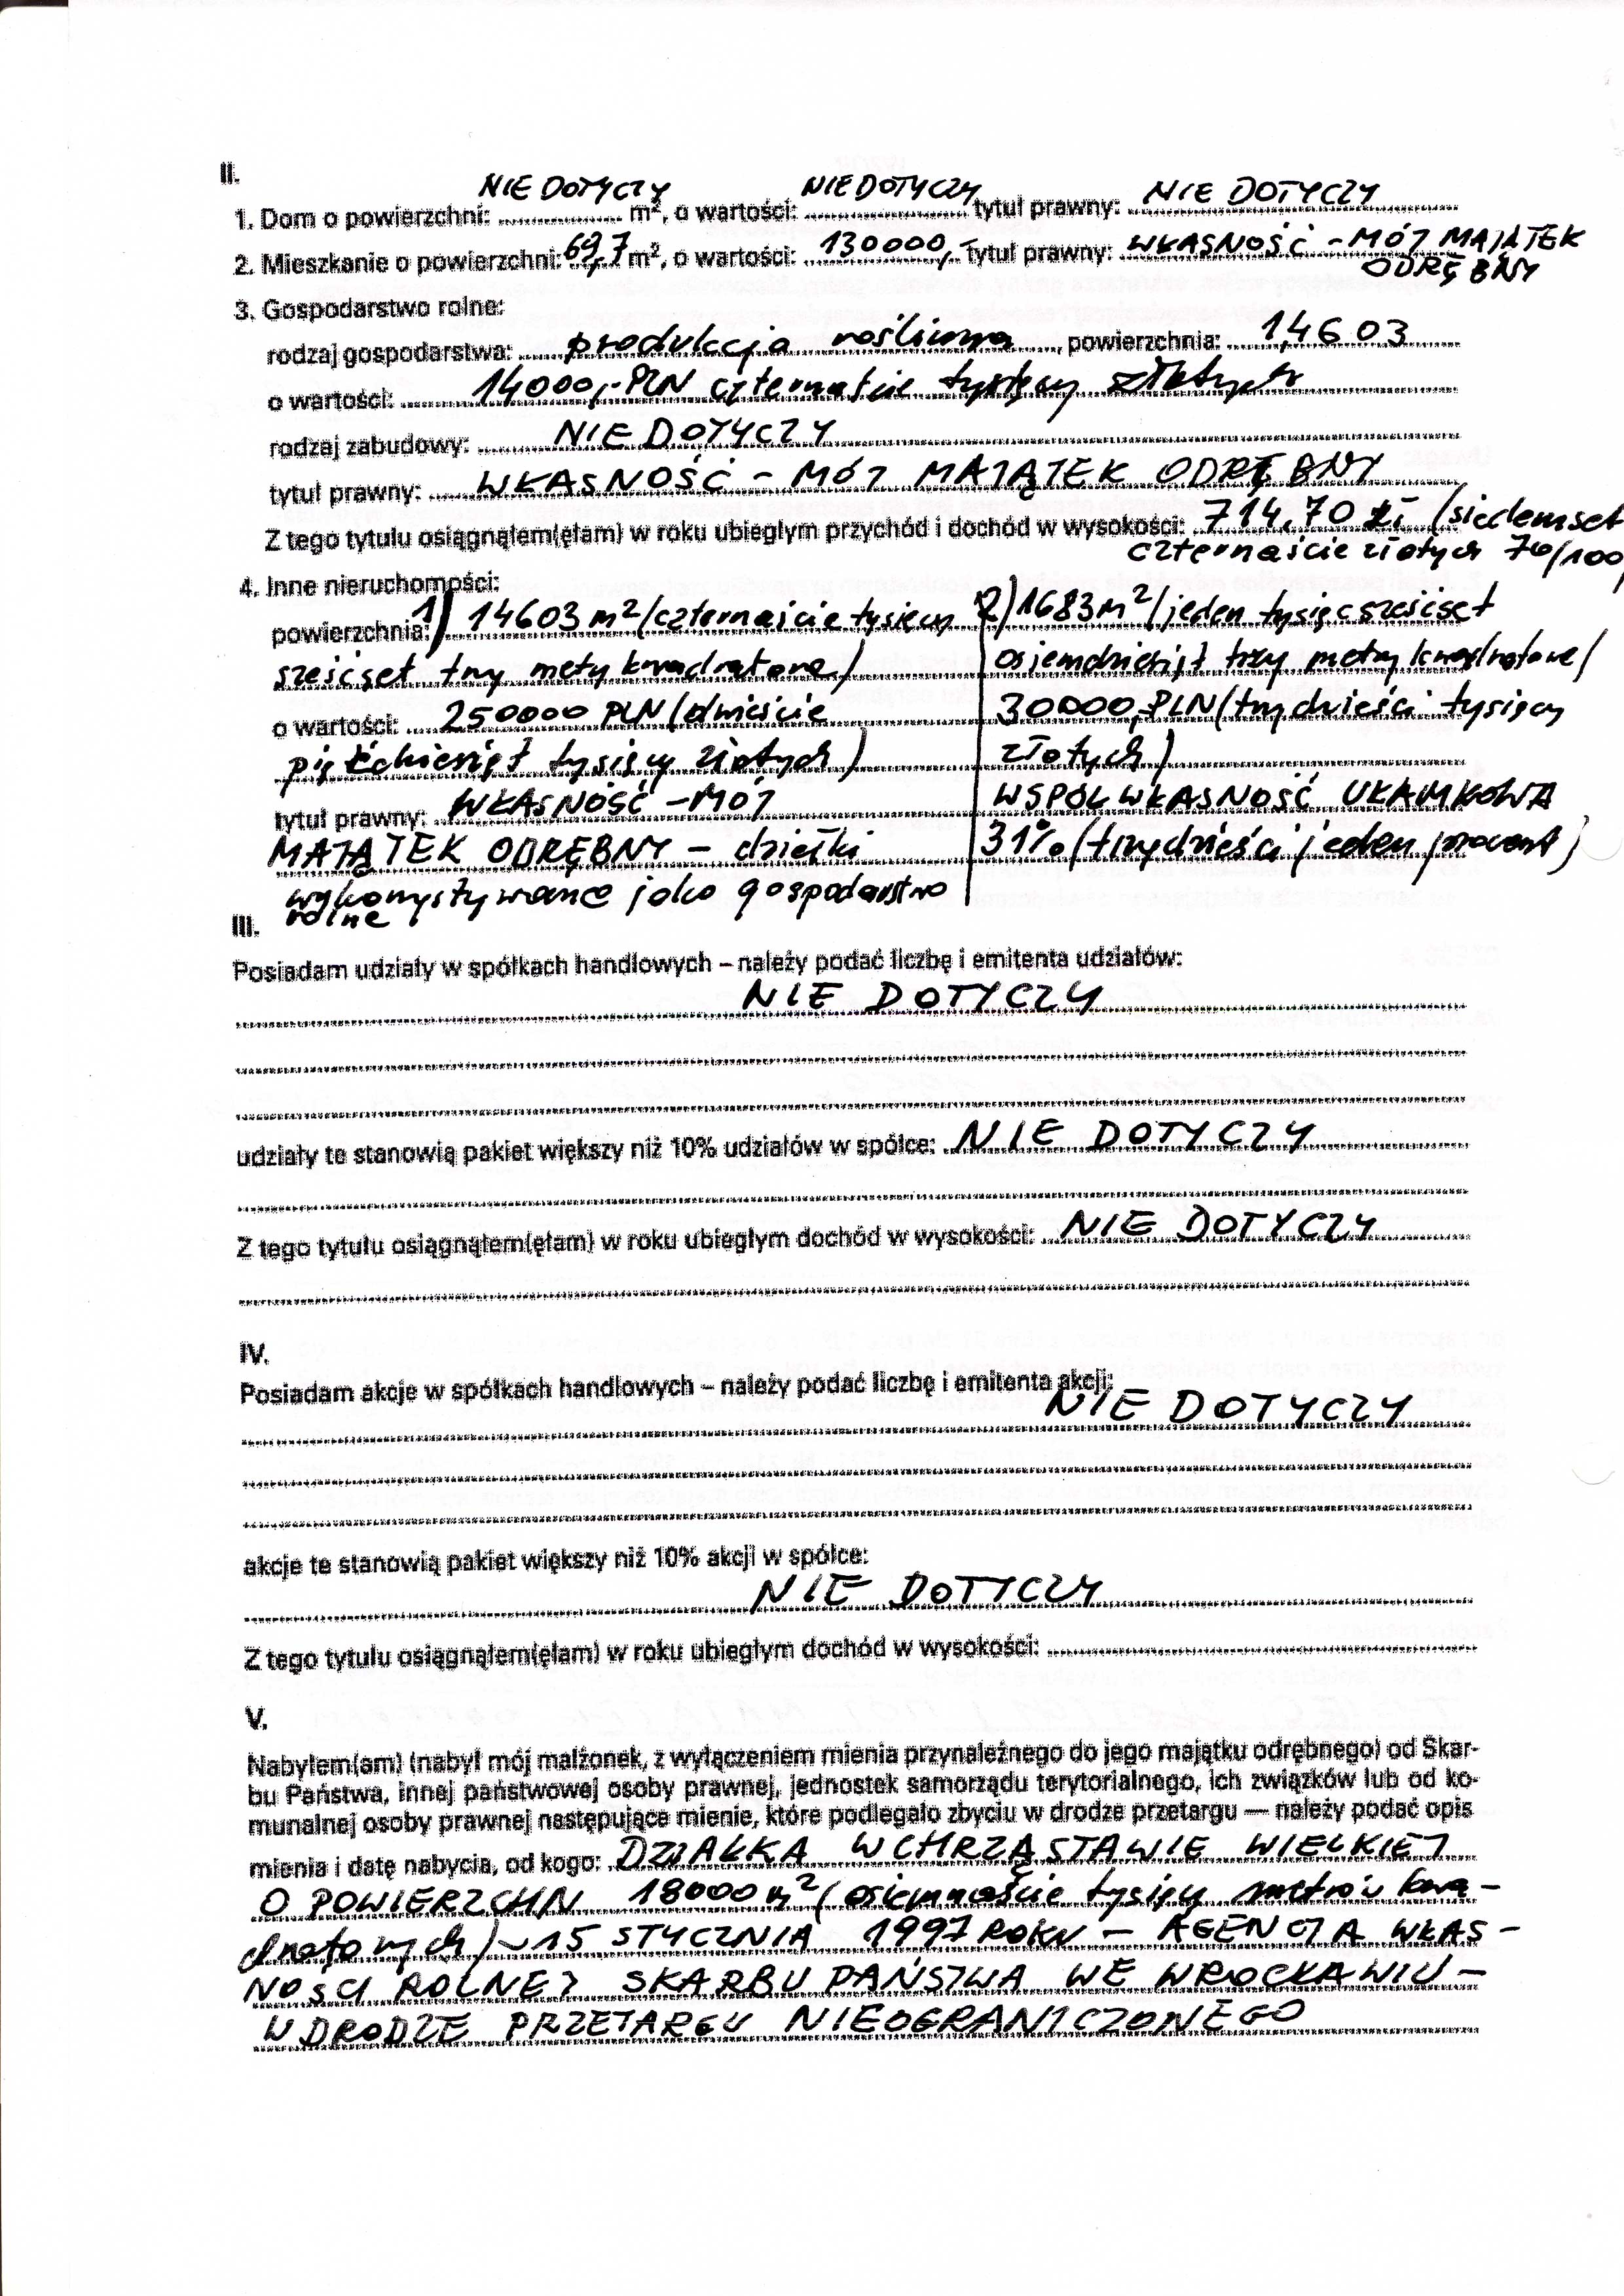 II.
1. Dom o powierzchni: NIE DOTYCZY m², o wartości: NIE DOTYCZY tytuł prawny: NIE DOTYCZY
2. Mieszkanie o powierzchni: 69,7 m², o wartości: 130000,- tytuł prawny: WŁASNOŚĆ - MÓJ MAJĄTEK
ODRĘBNY
3. Gospodarstwo rolne:
rodzaj gospodarstwa: produkcja roślinna, powierzchnia: 1,4603
o wartości: 14000,- PLN czternaście tysięcy złotych
rodzaj zabudowy: NIE DOTYCZY
tytuł prawny: WŁASNOŚĆ - MÓJ MAJĄTEK ODRĘBNY
Z tego tytułu osiągnąłem(ęłam) w roku ubiegłym przychód i dochód w wysokości: 714,70 zł (siedemset
czternaście złotych 70/100
4. Inne nieruchomości:
powierzchnia: 1) 14603 m² /czternaście tysięcy 2) 1683 m² /jeden tysiąc sześćset
sześćset trzy metry kwadratowe/ osiemdziesiąt trzy metry kwadratowe/
o wartości: 250000 PLN (dwieście 30000,- PLN (trzydzieści tysięcy
pięćdziesiąt tysięcy złotych) złotych)
tytuł prawny: WŁASNOŚĆ - MÓJ WSPÓŁWŁASNOŚĆ UŁAMKOWA
MAJĄTEK ODRĘBNY - działki 31% (trzydzieści jeden procent)
wykorzystywane jako gospodarstwo
rolne
III.
Posiadam udziały w spółkach handlowych – należy podać liczbę i emitenta udziałów:
NIE DOTYCZY
udziały te stanowią pakiet większy niż 10% udziałów w spółce: NIE DOTYCZY
Z tego tytułu osiągnąłem(ęłam) w roku ubiegłym dochód w wysokości: NIE DOTYCZY
IV.
Posiadam akcje w spółkach handlowych – należy podać liczbę i emitenta akcji:
NIE DOTYCZY
akcje te stanowią pakiet większy niż 10% akcji w spółce:
NIE DOTYCZY
Z tego tytułu osiągnąłem(ęłam) w roku ubiegłym dochód w wysokości:
V.
Nabyłem(am) (nabył mój małżonek, z wyłączeniem mienia przynależnego do jego majątku odrębnego) od Skar-
bu Państwa, innej państwowej osoby prawnej, jednostek samorządu terytorialnego, ich związków lub od ko-
munalnej osoby prawnej następujące mienie, które podlegało zbyciu w drodze przetargu — należy podać opis
mienia i datę nabycia, od kogo: DZIAŁKA W CHRZĄSTAWIE WIELKIEJ
O POWIERZCHN 18000 m² (osiemnaście tysięcy metrów kwa-
dratowych) - 15 STYCZNIA 1997 ROKU - AGENCJA WŁAS-
NOŚCI ROLNEJ SKARBU PAŃSTWA WE WROCŁAWIU -
W DRODZE PRZETARGU NIEOGRANICZONEGO